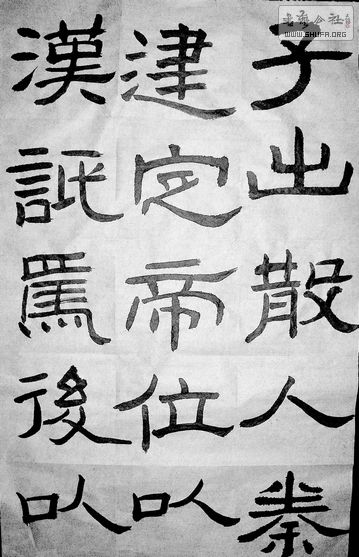 書藝公社
WWW.SHUFA.ORG
子出散入秦
建定帝位以
漢詆焉後以